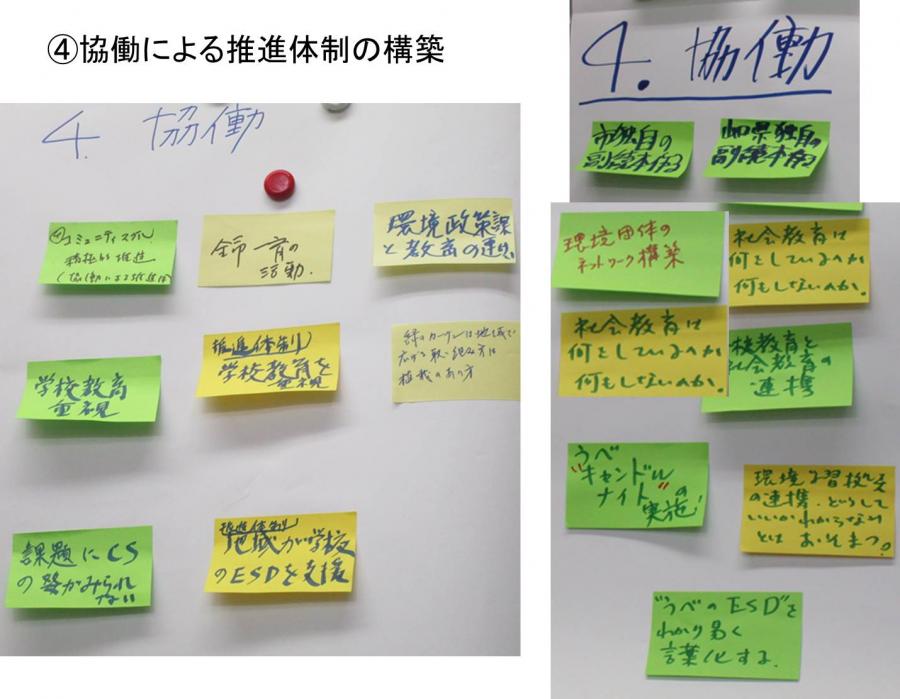 ④協働による推進体制の構築
4. 協働
コミュニティスクール
積極的推進
(協働による推進
全市一斉の
活動.
環境政策課
と教育の連携
学校教育
重視
推進体制
学校教育を
重視
緑のカーテンは地域で
広げる取り組み方は
組織のあり方
課題にCS
の姿がみられ
ない
推進体制
地域が学校
のESDを支援
4. 協働
市独自の
副読本作成
山口県独自の
副読本作成
環境団体の
ネットワーク構築
社会教育は
何をしているのか
何もしないのか.
社会教育は
何をしているのか
何もしないのか.
校教育と
社会教育の
連携
うべ
"キャンドル
ナイト"の
実施!
環境学習
の連携.どうして
いいかわからない
とは おそまつ。
"うべのESD"を
わかり易く
言葉化する.